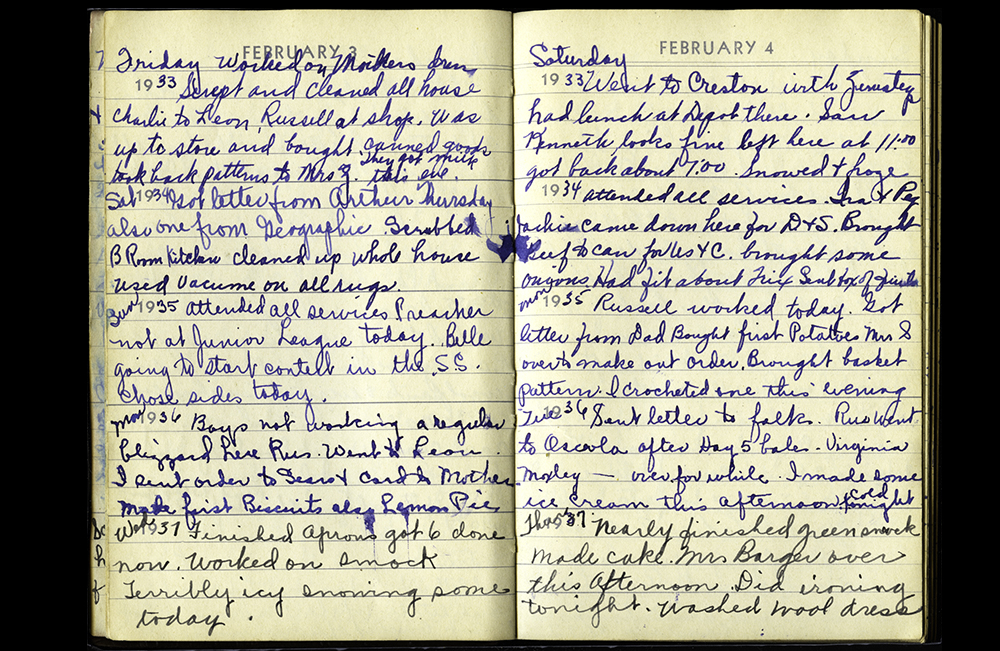 FEBRUARY 3
Friday Worked on Mothers
1933 Swept and cleaned all house
Charlie to Leon, Russell at shop. Was
up to store and bought canned goods
They got milk
took back patterns to Mrs this eve.
Sat 1934 Got letter from Arthur Thursday
also one from Geographic Scrubbed
B Room Kitchen cleaned up whole house
used Vacume on all rugs.
Sun 1935 attended all services Preacher
not at Junior League today. Belle
going to start contest in the S.S.
Chose sides today.
Mon 1936 Boys not working a regular
blizzard here Rus. Went to Leon.
I sent order to Sears & card to Mother
Made first Biscuits also Lemon Pie
Wed 1937 Finished Aprons got 6 done
now. Worked on smock
Terribly icy snowing some
today.
FEBRUARY 4
Saturday
1933 Went to Creston with
had lunch at Depot there. Saw
Kenneth, looks fine left here at 11:00
got back about 7:00. Snowed & froze
1934 attended all services. Ira & Peg
Jackie came down here for D & S. Brought
beef to can for us & C. brought some
onions Had fit about Trix Sent box of
Mon 1935 Russell worked today. Got
letter from Dad Bought first Potatoes Mrs S
over to make out order. Brought basket
pattern. I crocheted one this evening
Tue 1936 Sent letter to folks. Rus Went
to Osceola after Hay 5 bales. Virginia
Morley — over for while. I made some
ice cream this afternoon & cold tonight
Thurs 1937 Nearly finished green smock
Made cake. Mrs Barger over
this Afternoon. Did ironing
tonight. Washed wool dress